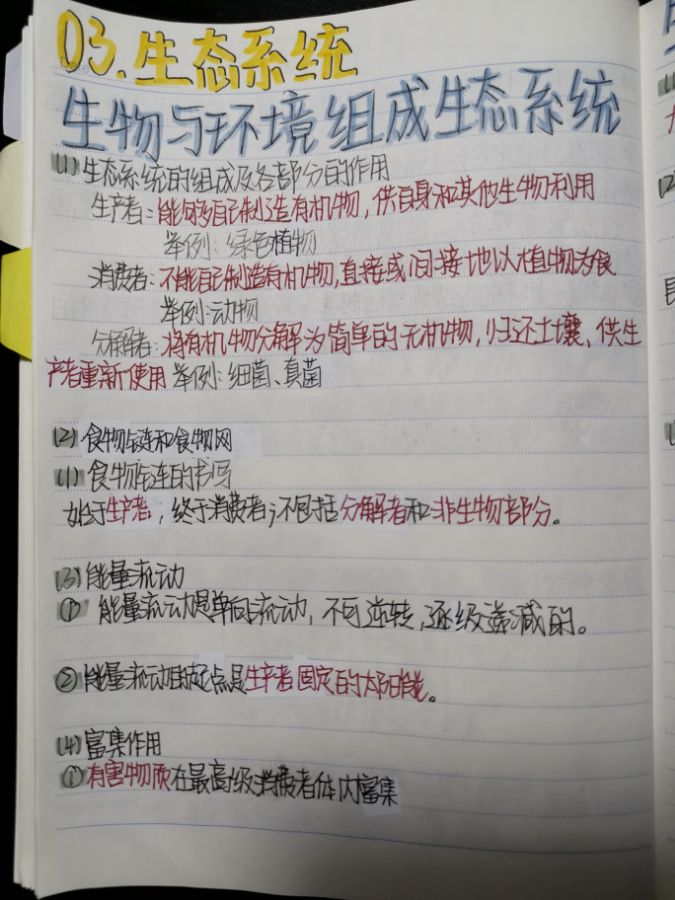 03.生态系统
生物与环境组成生态系统
(1)生态系统的组成及各部分的作用
生产者:能够自己制造有机物,供自身和其他生物利用
举例:绿色植物
消费者:不能自己制造有机物,直接或间接地以植物为食
举例:动物
分解者:将有机物分解为简单的无机物,归还土壤、供生
产者重新使用 举例:细菌、真菌
(2)食物链和食物网
(1)食物链的书写
始于生产者,终于消费者;不包括分解者和非生物部分。
(3)能量流动
① 能量流动是单向流动,不可逆转,逐级递减的。
②能量流动的起点是生产者固定的太阳能。
(4)富集作用
①有害物质在最高级消费者体内富集